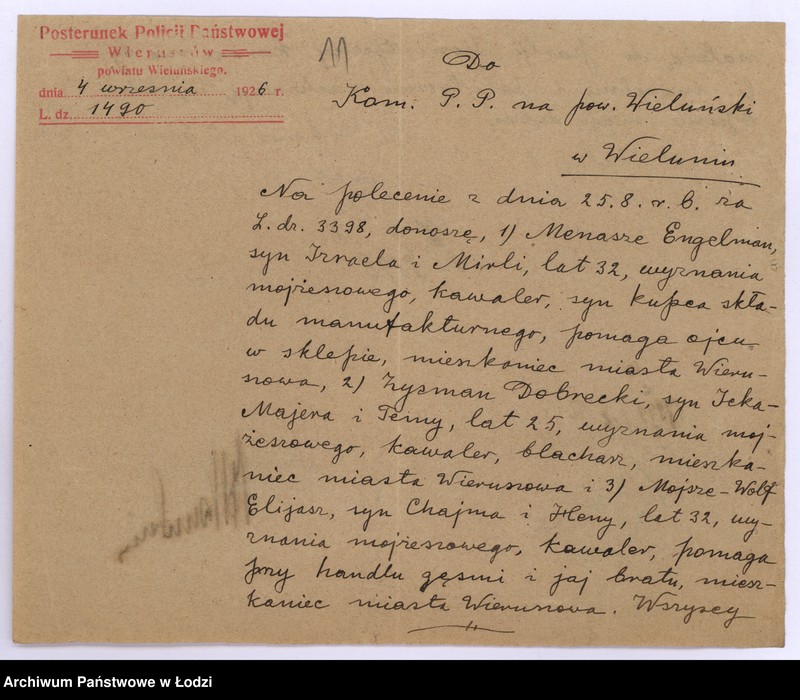 Posterunek Policji Państwowej
Wieruszów
powiatu Wieluńskiego.
dnia 4 września 1926 r.
L. dz. 1490
11
Do
Kom. P. P. na pow. Wieluński
w Wieluniu
Na polecenie z dnia 25.8. r. b. za
L. dz. 3398, donoszę, 1) Menasze Engelman,
syn Izraela i Mirli, lat 32, wyznania
mojżeszowego, kawaler, syn kupca skła-
du manufakturnego, pomaga ojcu
w sklepie, mieszkaniec miasta Wieru-
szowa, 2) Zysman Dobrecki, syn Icka-
Majera i Temy, lat 25, wyznania moj-
żeszowego, kawaler, blacharz, mieszka-
niec miasta Wieruszowa i 3) Mojsze-Wolf
Elijasz, syn Chajma i Heny, lat 32, wy-
znania mojżeszowego, kawaler, pomaga
przy handlu gęsmi i jaj bratu, miesz-
kaniec miasta Wieruszowa. Wszyscy
Archiwum Państwowe w Łodzi